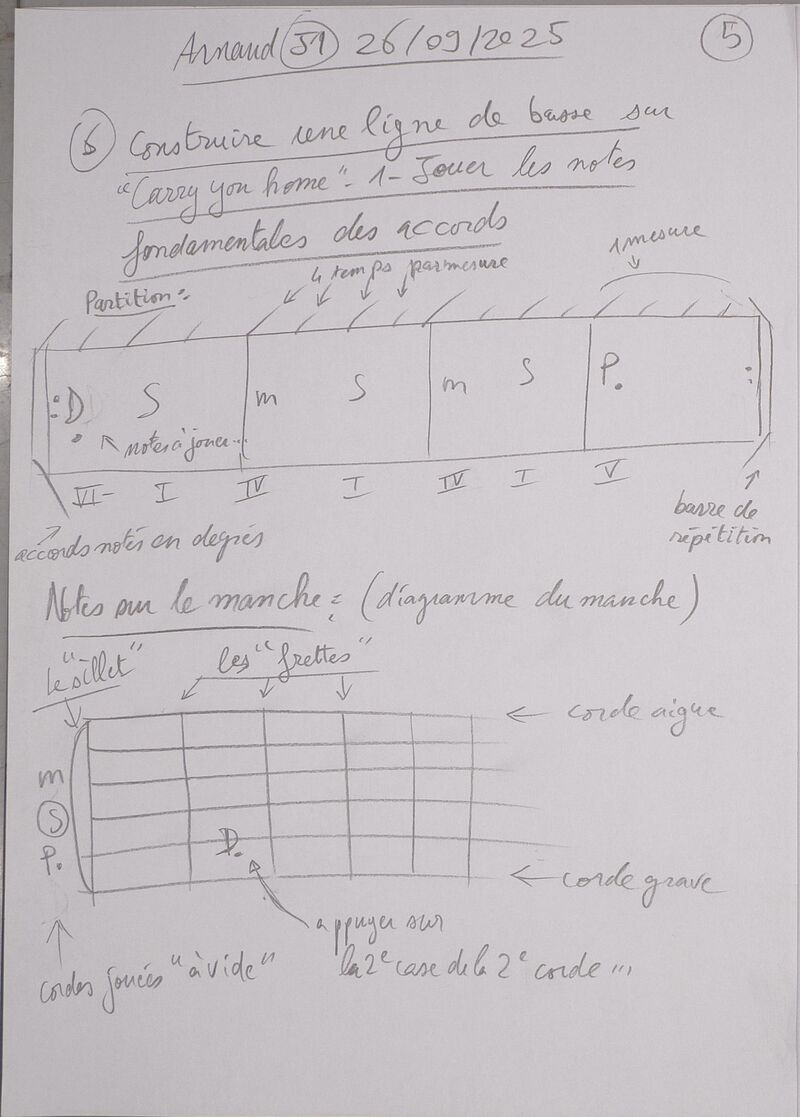 Arnaud 51 26/09/2025
5
6 Construire une ligne de basse sur
"Carry you home" - 1 - Jouer les notes
fondamentales des accords
4 temps par mesure
1 mesure
Partition :
: D S m S m S P. :
notes à jouer...
VI- I IV I IV I V
accords notés en degrés
barre de
répétition
Notes sur le manche : (diagramme du manche)
"le sillet"
les "frettes"
corde aigue
m
S
P.
D.
corde grave
appuyer sur
la 2e case de la 2e corde ...
cordes jouées "à vide"